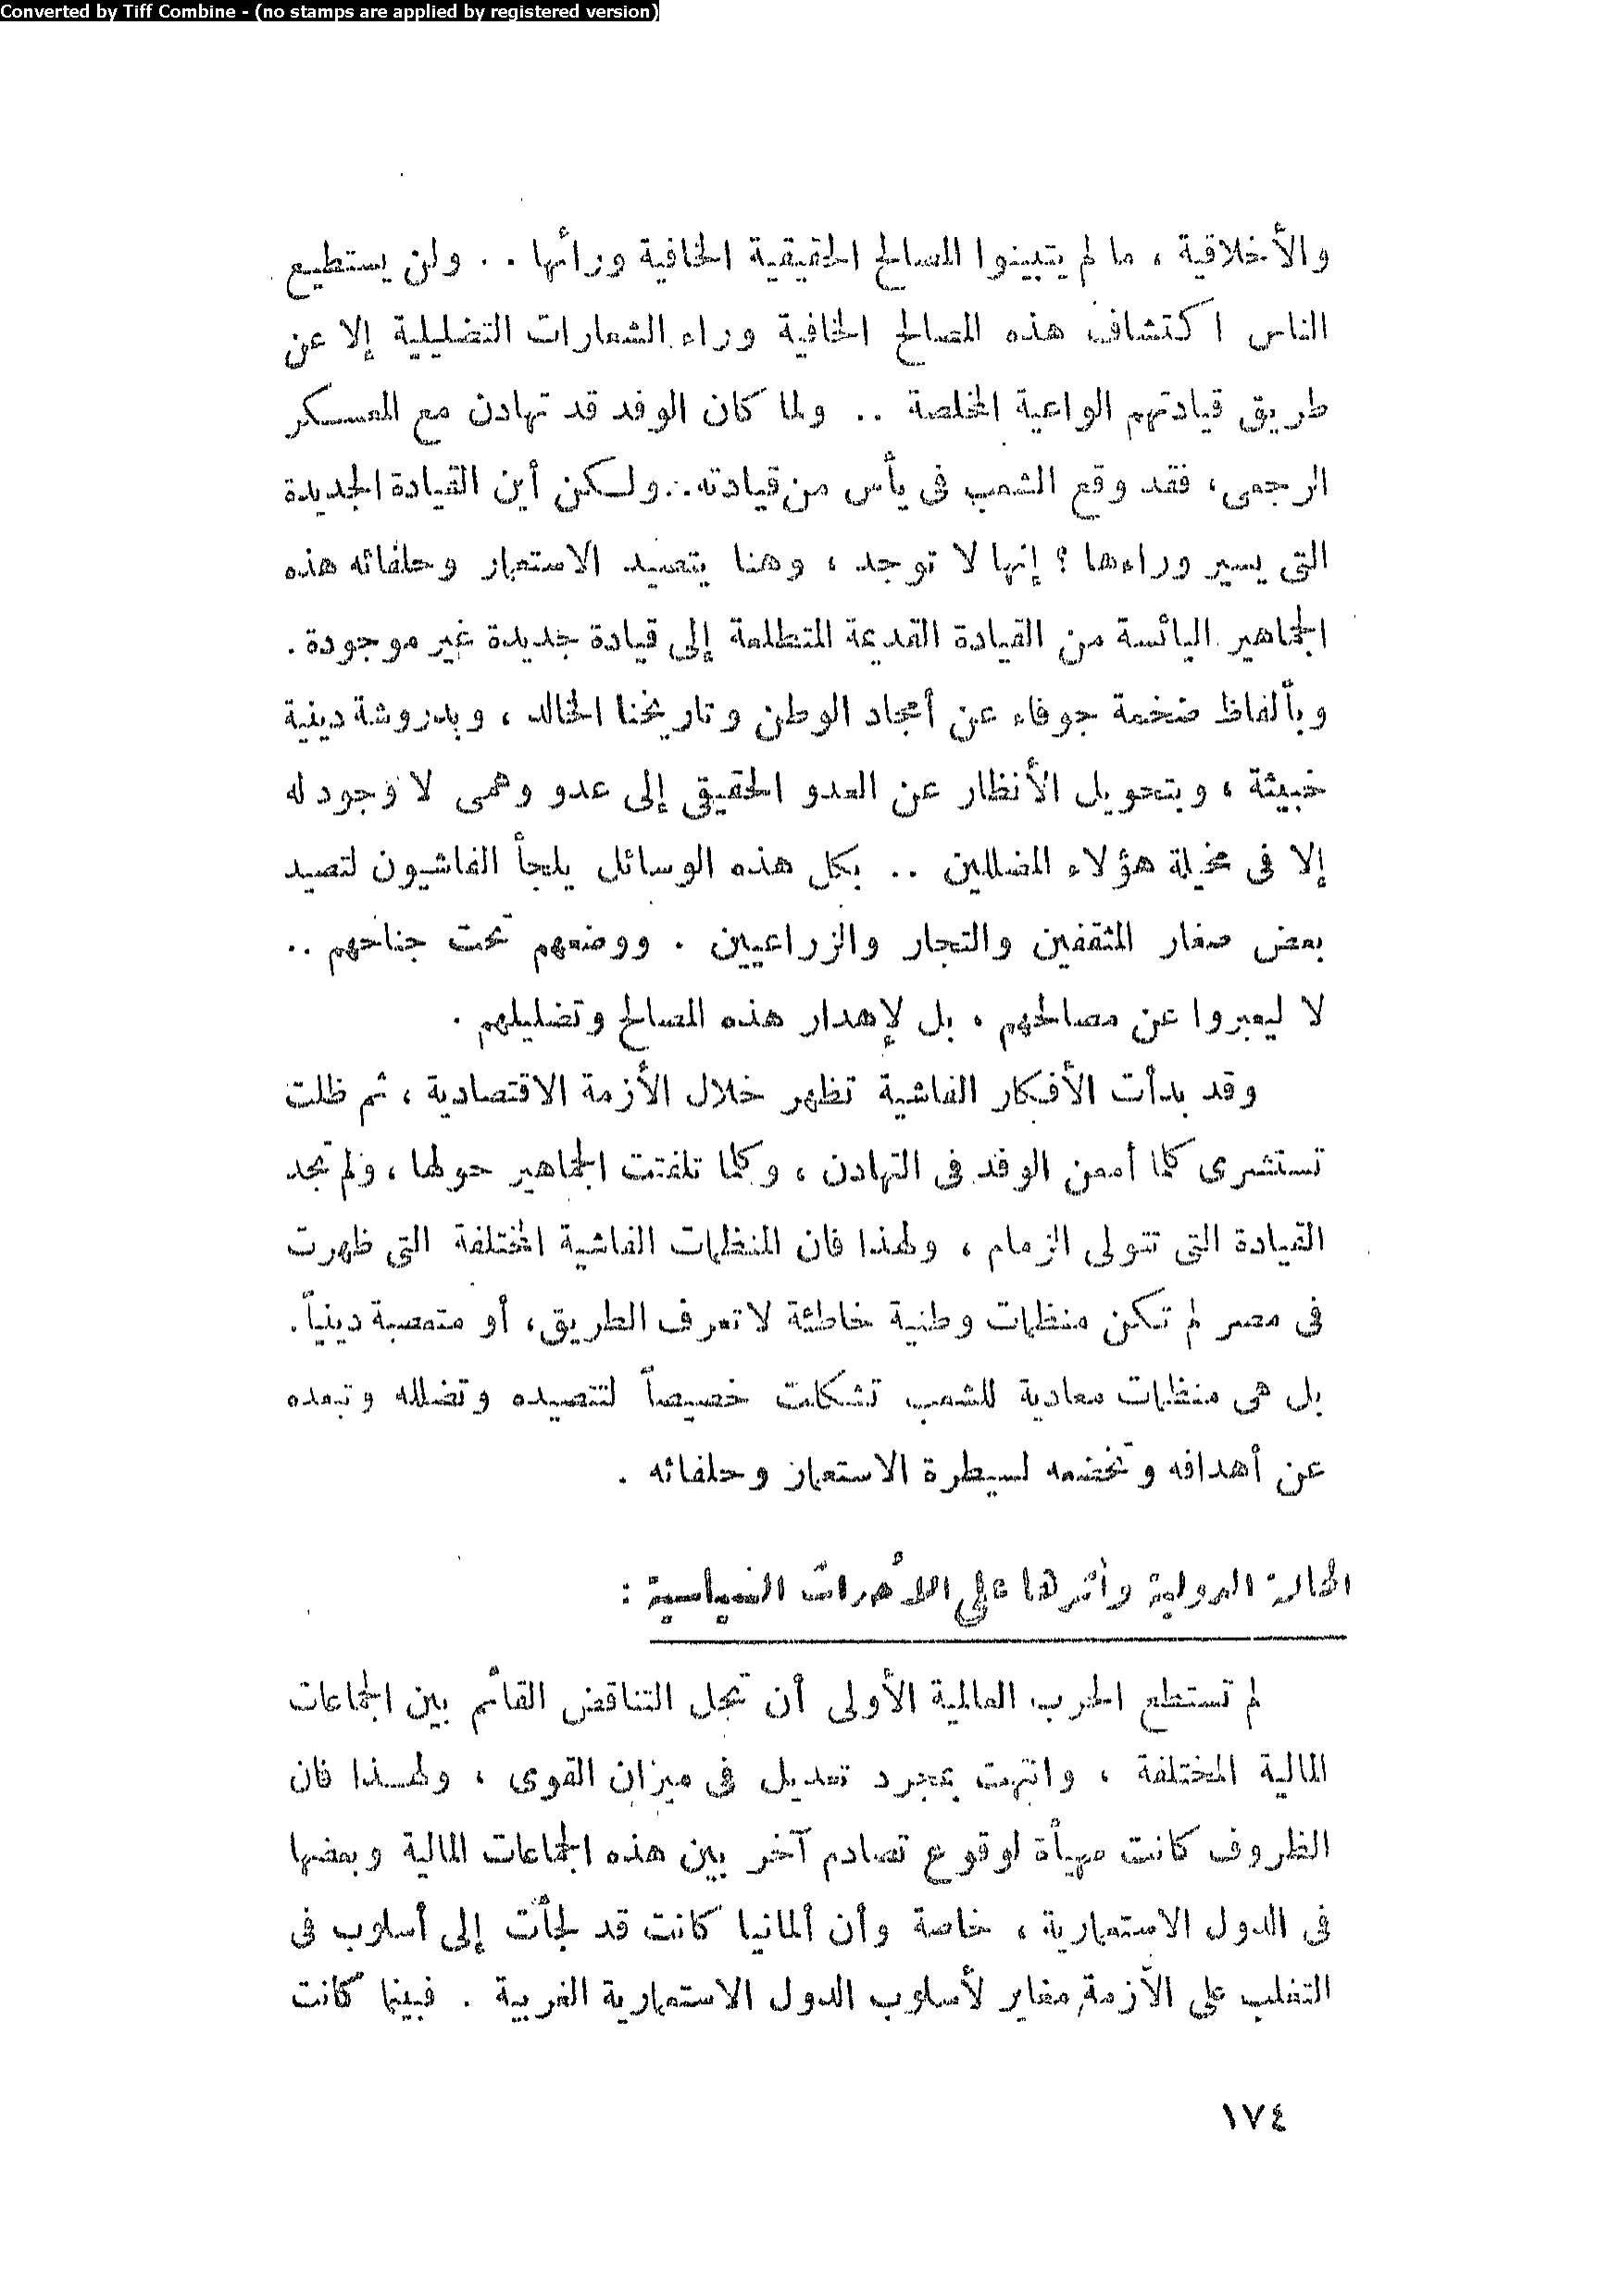 Converted by Tiff Combine - (no stamps are applied by registered version)
والأخلاقية ، ما لم يتبينوا المصالح الحقيقية الخافية ورائها . . ولن يستطيع
الناس اكتشاف هذه المصالح الخافية وراء الشعارات التضليلية إلا عن
طريق قيادتهم الواعية المخلصة .. ولما كان الوفد قد تهادن مع المعسكر
الرجعى، فقد وقع الشعب فى يأس من قيادته.. ولكن أين القيادة الجديدة
التى يسير وراءها ؟ إنها لا توجد ، وهنا يتصيد الاستعمار وحلفائه هذه
الجماهير اليائسة من القيادة القديمة المتطلعة إلى قيادة جديدة غير موجودة .
وبألفاظ ضخمة جوفاء عن أمجاد الوطن وتاريخنا الخالد ، وبدروشة دينية
خبيثة ، وبتحويل الأنظار عن العدو الحقيقى إلى عدو وهمى لا وجود له
إلا فى مخيلة هؤلاء المضللين .. بكل هذه الوسائل يلجأ الفاشيون لتصيد
بعض صغار المثقفين والتجار والزراعيين . ووضعهم تحت جناحهم ..
لا ليعبروا عن مصالحهم ، بل لإهدار هذه المصالح وتضليلهم .
وقد بدأت الأفكار الفاشية تظهر خلال الأزمة الاقتصادية ، ثم ظلت
تستشرى كلما أمعن الوفد فى التهادن ، وكلما تلفتت الجماهير حولها ، ولم تجد
القيادة التى تتولى الزمام ، ولهذا فان المنظمات الفاشية المختلفة التى ظهرت
فى مصر لم تكن منظمات وطنية خاطئة لا تعرف الطريق، أو متعصبة دينياً.
بل هى منظمات معادية للشعب تشكلت خصيصاً لتتصيده وتضلله وتبعده
عن أهدافه وتخضعه لسيطرة الاستعمار وحلفائه .
الحالة الدولية وأثرها على الأحداث السياسية :
لم تستطع الحرب العالمية الأولى أن تحل التناقض القائم بين الجماعات
المالية المختلفة ، وانتهت بمجرد تعديل فى ميزان القوى ، ولهذا فان
الظروف كانت مهيأة لوقوع تصادم آخر بين هذه الجماعات المالية وبعضها
فى الدول الاستعمارية ، خاصة وأن ألمانيا كانت قد لجأت إلى أسلوب فى
التغلب على الأزمة مغاير لأسلوب الدول الاستعمارية الغربية . فبينما كانت
١٧٤